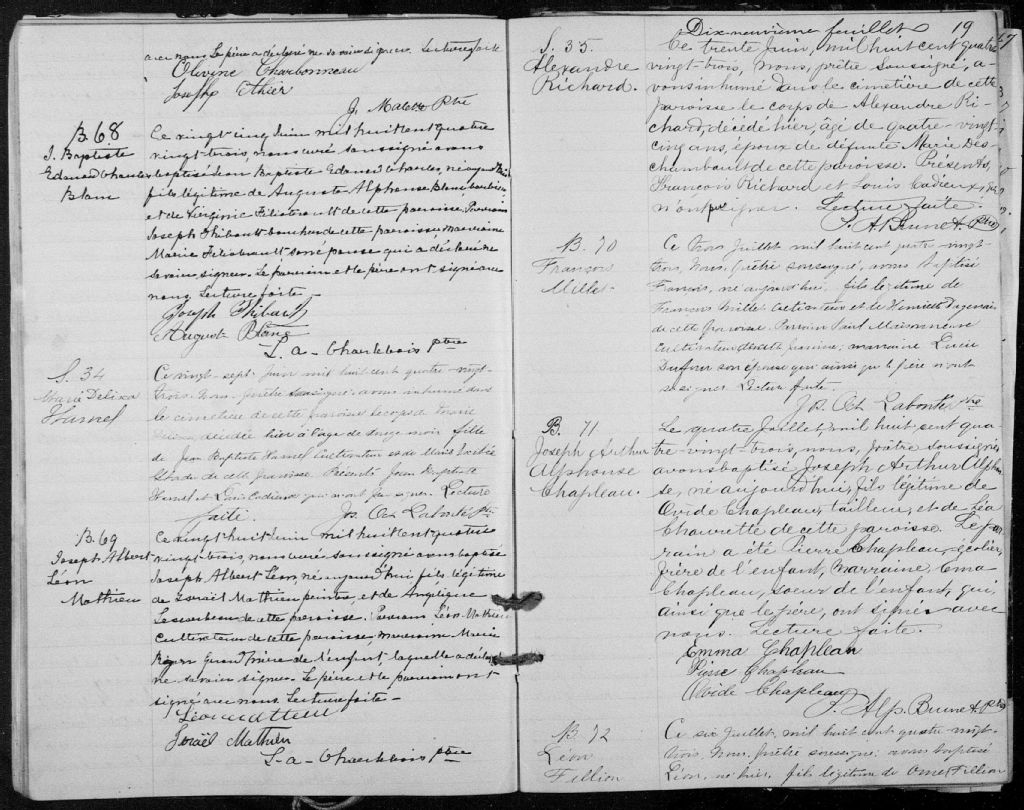 avec nous. Le père a déclaré ne savoir signer. Lecture faite
Olivine Charbonneau
Joseph Ethier
J. Ptre
B. 68
J. Baptiste
Edouard Charles
Blanc
Ce vingt cinq Juin mil huit cent quatre
vingt trois, nous curé soussigné avons
baptisé Jean Baptiste Edouard Charles, né
fils légitime de Auguste Alphonse Blanc
et de Virginie de cette paroisse. Parrain
Joseph Thibault boucher de cette paroisse marraine
Marie son épouse qui a déclaré ne
savoir signer. Le parrain et le père ont signé avec
nous. Lecture faite
Joseph Thibault
Auguste Blanc
L. a. Charlebois Ptre
S. 34
Marie Délixa
Hamel
Ce vingt-sept juin mil huit cent quatre-vingt
trois, nous, prêtre soussigné, avons inhumé dans
le cimetière de cette paroisse le corps de Marie
décédée hier à l'age de mois fille
de Jean Baptiste Hamel Cultivateur et de Marie
de cette paroisse. Présents Jean Baptiste
Hamel et Louis Cadieux qui n'ont pu signer. Lecture
faite. Jos. Oct. Labonté Ptr.
B. 69
Joseph Albert
Léon
Mathieu
Ce vingt huit Juin mil huit cent quatre
vingt trois, nous curé soussigné avons baptisé
Joseph Albert Léon, né aujourd'hui fils légitime
de Israël Mathieu peintre, et de Angélique
de cette paroisse. Parrain Léon Mathieu
Cultivateur de cette paroisse, marraine Marie
grand'mère de l'enfant, laquelle a déclaré
ne savoir signer. Le père et le parrain ont
signé avec nous. Lecture faite
Léon Mathieu
Israël Mathieu
L. a. Charlebois Ptre
Dix-neuvième feuillet 19
S. 35.
Alexandre
Richard.
Ce trente Juin, mil huit cent quatre
vingt-trois, nous, prêtre soussigné, a-
vons inhumé dans le cimetière de cette
paroisse le corps de Alexandre Ri-
chard, décédé hier, âgé de quatre-vingt-
cinq ans, époux de défunte Marie Des-
chambault de cette paroisse. Présents,
François Richard et Louis Cadieux, qui
n'ont pu signer. Lecture faite.
J. A. Brunet. Ptre
B. 70
François
Millet
Ce trois Juillet, mil huit cent quatre vingt-
trois, nous, prêtre soussigné, avons baptisé
François, né aujourd'hui fils légitime de
François Millet Cultivateur et de Henriette
de cette paroisse. Parrain Paul Maisonneuve
Cultivateur de cette paroisse; marraine Lucie
Dufour son épouse qui ainsi que le père n'ont
su signer Lecture faite.
Jos. Oct. Labonté Ptre
B. 71
Joseph Arthur
Alphonse
Chapleau.
Le quatre Juillet, mil huit cent qua-
tre-vingt-trois, nous, prêtre soussigné,
avons baptisé Joseph Arthur Alphon-
se, né aujourd'hui, fils légitime de
Ovide Chapleau, tailleur, et de Léa
Chaurette de cette paroisse. Le par-
rain a été Pierre Chapleau, écolier,
frère de l'enfant, marraine Ema
Chapleau, soeur de l'enfant, qui,
ainsi que le père, ont signés avec
nous. Lecture faite.
Emma Chapleau
Pierre Chapleau
Ovide Chapleau
J. Alp. Brunet. Ptre
B. 72
Léon
Fillion
Ce six juillet, mil huit cent quatre vingt-
trois, nous, prêtre soussigné, avons baptisé
Léon, né hier, fils légitime de Omer Fillion